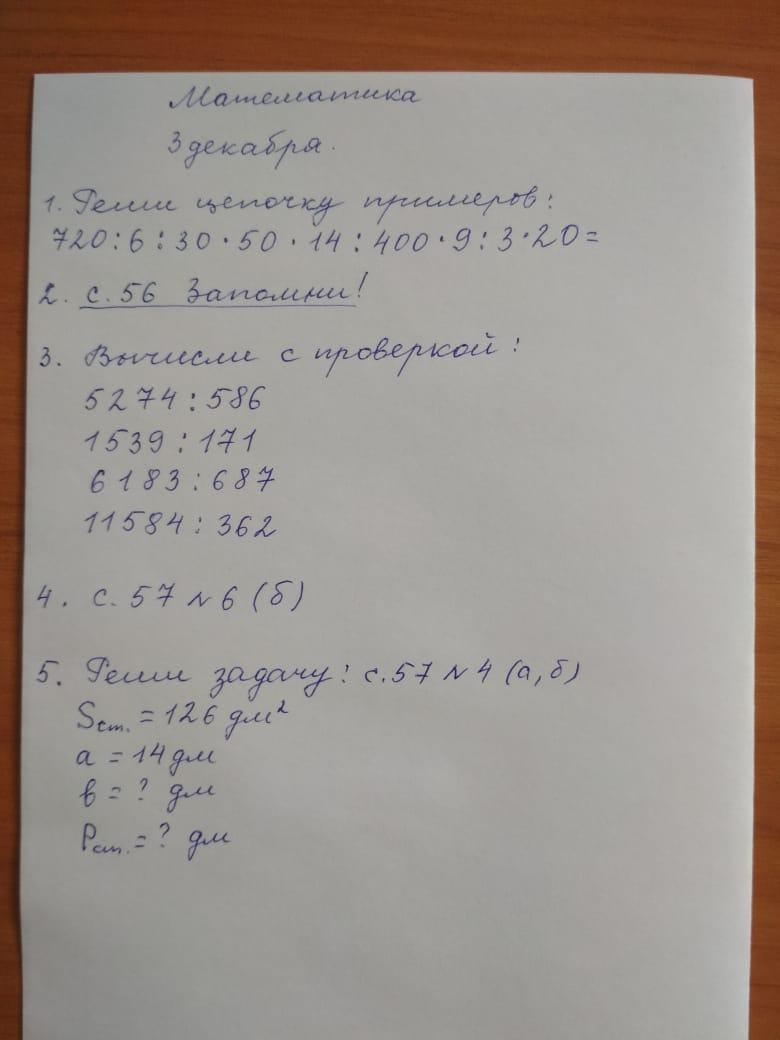 Математика
3 декабря.
1. Реши цепочку примеров:
720:6:30·50·14:400·9:3·20=
2. с.56 Запомни!
3. Вычисли с проверкой:
5274:586
1539:171
6183:687
11584:362
4. с. 57 №6 (б)
5. Реши задачу: с.57 №4 (а,б)
Sст. = 126 дм²
а = 14 дм
в = ? дм
Pст. = ? дм